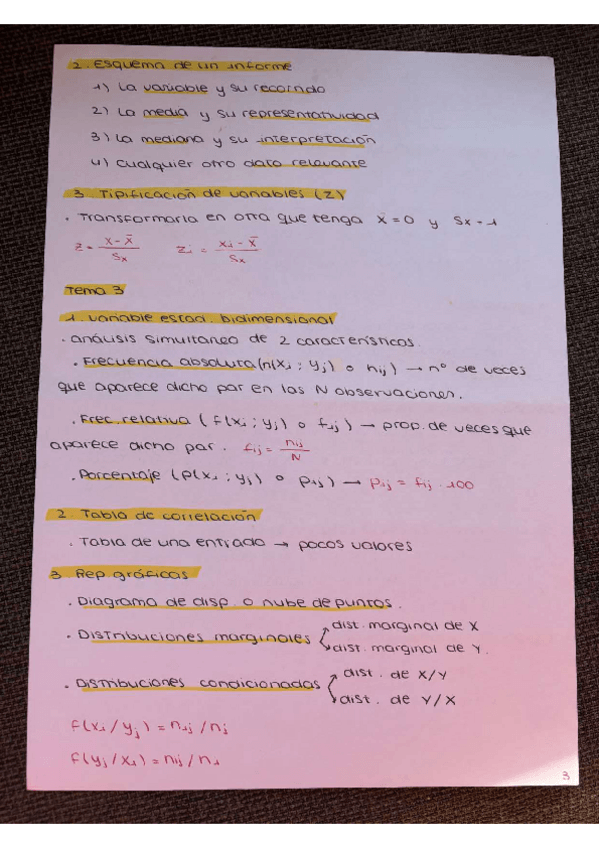 2. Esquema de un informe
1) La variable y su recorrido
2) La media y su representatividad
3) La mediana y su interpretación
4) Cualquier otro dato relevante
3. Tipificación de variables (Z)
. Transformarla en otra que tenga x̄ = 0 y Sx = 1
z = (x - x̄) / Sx    zi = (xi - x̄) / Sx
Tema 3
1. Variable estad. bidimensional
. análisis simultaneo de 2 características.
. Frecuencia absoluta (n(xi ; yj) o nij) → nº de veces
que aparece dicho par en las N observaciones.
. Frec. relativa ( f(xi ; yj) o fij ) → prop. de veces que
aparece dicho par. fij = nij / N
. Porcentaje ( p(xi ; yj) o pij ) → pij = fij · 100
2. Tabla de correlación
. Tabla de una entrada → pocos valores
3 Rep. gráficas
. Diagrama de disp. o nube de puntos.
. Distribuciones marginales
dist. marginal de X
dist. marginal de Y.
. Distribuciones condicionadas
dist. de X/Y
dist. de Y/X
f(xi / yj) = nij / nj
f(yj / xi) = nij / ni
3